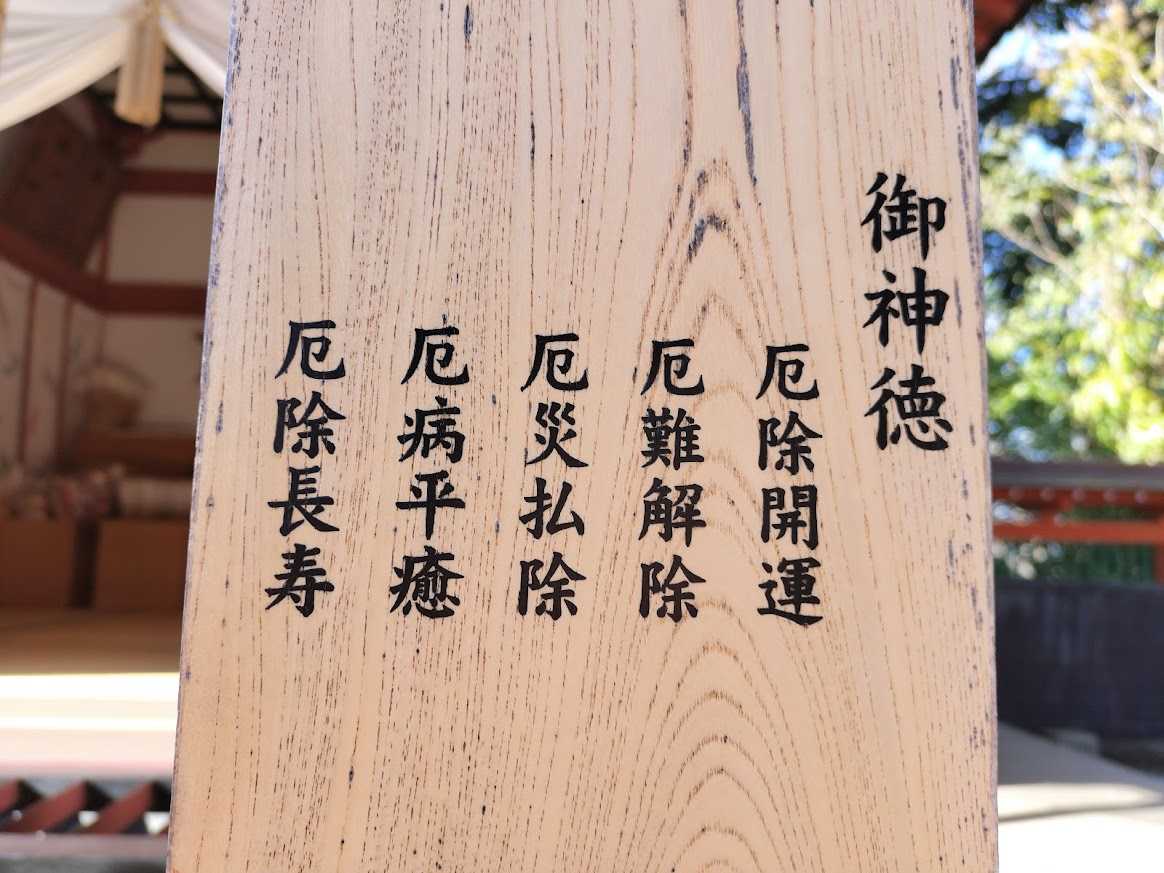 御神徳
厄除開運
厄難解除
厄災払除
厄病平癒
厄除長寿